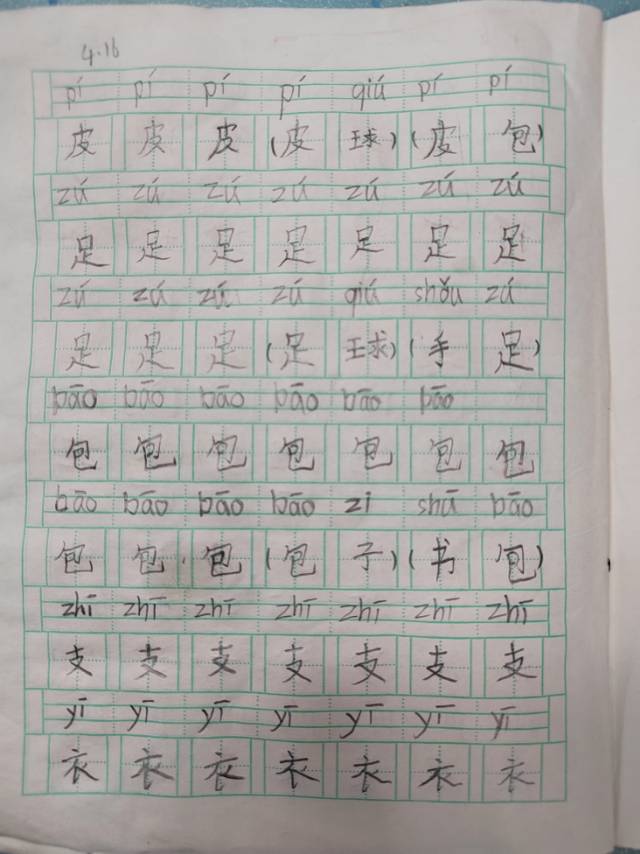 4.16
pí pí pí pí qiú pí pí
皮 皮 皮 (皮 球) (皮 包)
zú zú zú zú zú zú zú
足 足 足 足 足 足 足
zú zú zú zú qiú shǒu zú
足 足 足 (足 球) (手 足)
bāo bāo bāo bāo bāo bāo
包 包 包 包 包 包 包
bāo bāo bāo bāo zi shū bāo
包 包 包 (包 子) (书 包)
zhī zhī zhī zhī zhī zhī zhī
支 支 支 支 支 支 支
yī yī yī yī yī yī yī
衣 衣 衣 衣 衣 衣 衣